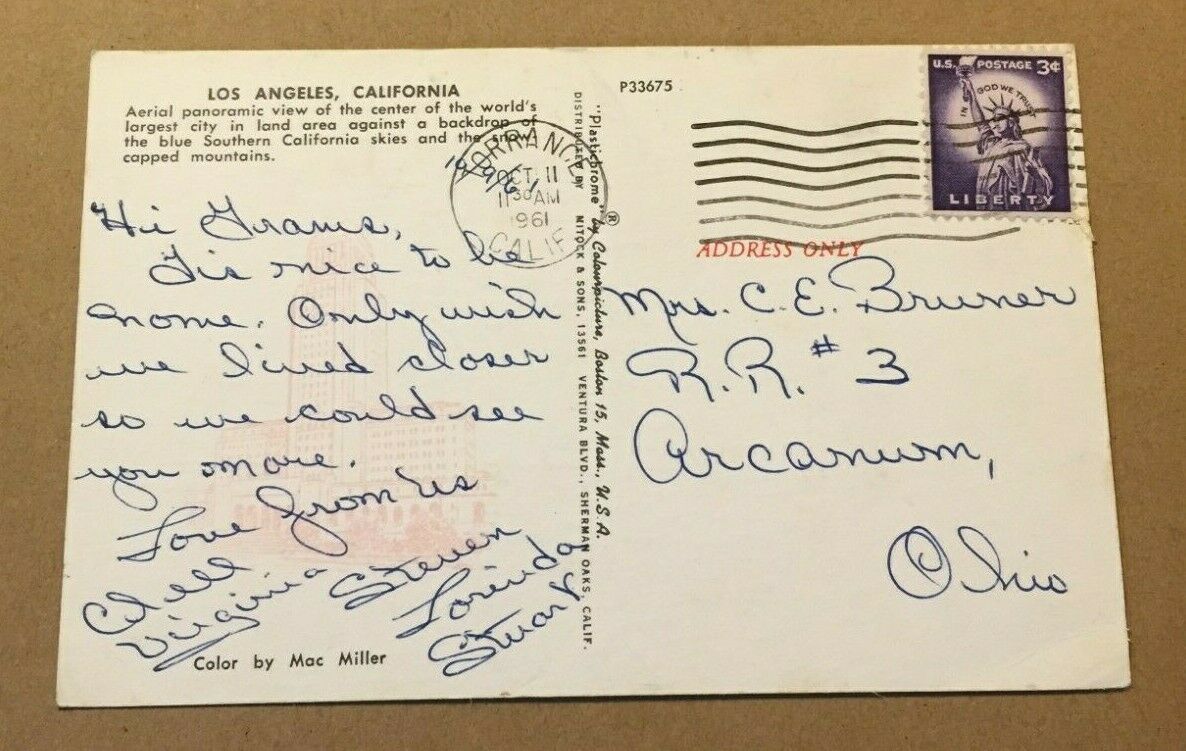 LOS ANGELES, CALIFORNIA
Aerial panoramic view of the center of the world's
largest city in land area against a backdrop of
the blue Southern California skies and the snow
capped mountains.
10/9/61
Hi Grams,
Tis nice to be
home. Only wish
we lived closer
so we could see
you more.
Love from us
Virginia
Steven
Lorinda
Stuart
Color by Mac Miller
"Plastichrome" ® by Colourpicture, Boston 15, Mass., U.S.A.
DISTRIBUTED BY MITOCK & SONS, 13561 VENTURA BLVD., SHERMAN OAKS, CALIF.
P33675
TORRANCE,
OCT 11
11 30 AM
1961
CALIF
U.S. POSTAGE 3¢
IN GOD WE TRUST
LIBERTY
ADDRESS ONLY
Mrs. C. E. Bruner
R.R. #3
Arcanum,
Ohio